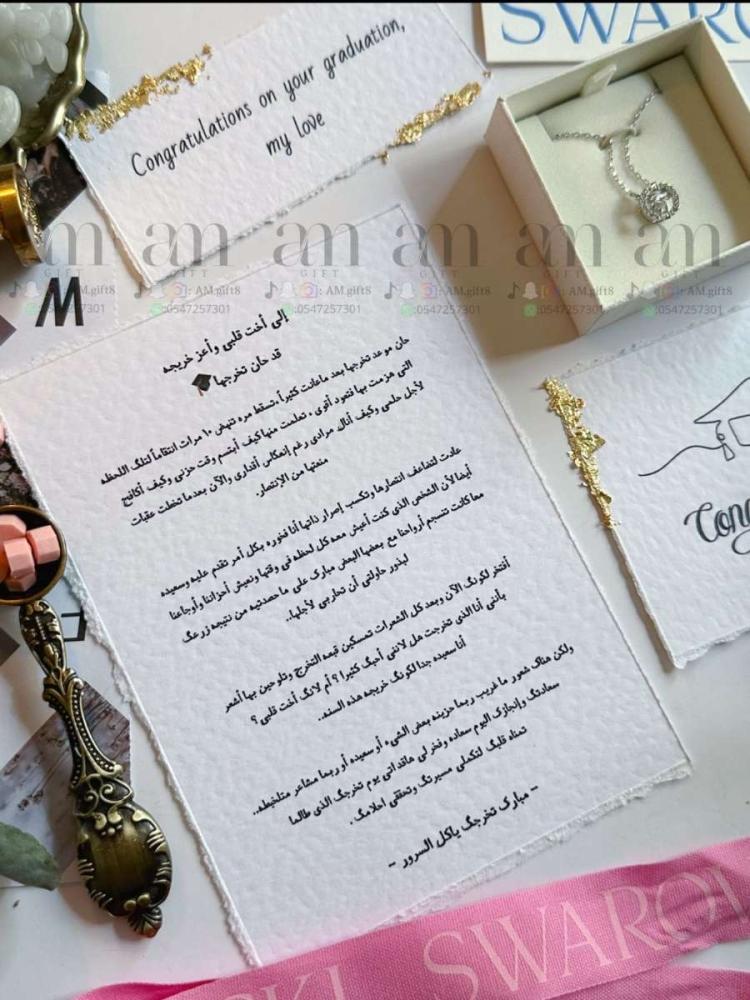 SWARO
Congratulations on your graduation,
my love
am am am am am am
GIFT GIFT GIFT GIFT GIFT GIFT
: AM.gift8 : AM.gift8 : AM.gift8 : AM.gift8 : AM.gift8 : AM.gift8
:0547257301 :0547257301 :0547257301 :0547257301 :0547257301 :0547257301
M
إلى أخت قلبي وأعز خريجه
قد حان تخرجها🎓
حان موعد تخرجها بعد ماعانت كثيراً ،تسقط مره تنهض ١٠ مرات انتقاماً لتلگ اللحظه
التي هزمت بها فتعود أقوى ، تعلمت منها كيف أبتسم وقت حزني وكيف أكافح
لأجل حلمي وكيف أنال مرادي رغم إنعكاس أقداري والآن بعدما تخطت عقبات
منعتها من الإنتصار.
عادت لتضاعف انتصارها وتكسب إصرار ذاتها أنا فخوره بكل أمر تقدم عليه وسعيده
أيضاً لأن الشخص الذي كنت أعيش معه كل لحظه في وقتها ونعيش أحزاننا وأوجاعنا
معا كانت تنسجم أرواحنا مع بعضها البعض مبارك على ما حصدتيه من نتيجه زرعگ
لبذور حاولتي أن تحاربي لأجلها..
أفتخر لكونگ الآن وبعد كل الشعرات تمسكين قبعه التخرج وتلوحين بها أشعر
بأنني أنا الذي تخرجت هل لانني أحبگ كثيرا ؟ أم لانگ أخت قلبي ؟
أنا سعيده جدا لكونگ خريجه هذه السنه..
ولكن هناك شعور ما غريب ربما حزينه بعض الشيء أو سعيده أو ربما مشاعر متلخبطه..
سعادتگ وإنجازگ اليوم سعاده وفخر لي هاقد اتى يوم تخرجگ الذي طالما
تمناه قلبگ لتكملي مسيرتگ وتحققي احلامگ .
- مبارك تخرجگ ياكل السرور -
Cong
SKI SWAROV